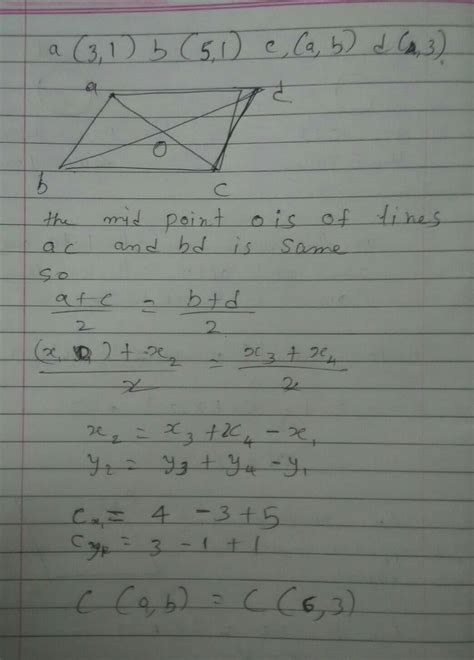 a (3,1) b (5,1) c, (a, b) d (4, 3)
a
d
O
b
c
the mid point o is of lines
ac and bd is same
so
a+c / 2 = b+d / 2
(x, ) + x2 / 2 = x3 + x4 / 2
x2 = x3 + x4 - x1
y2 = y3 + y4 - y1
Cx = 4 - 3 + 5
Cy = 3 - 1 + 1
C (a, b) = C (6, 3)